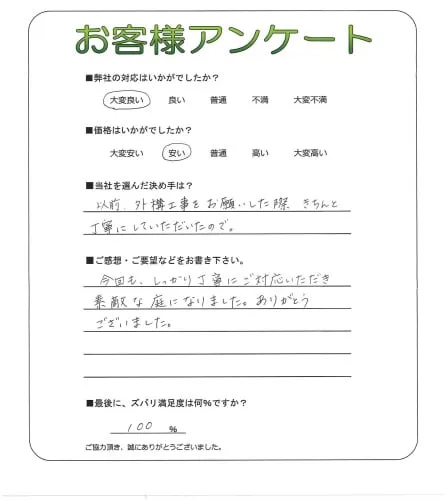 お客様アンケート
■弊社の対応はいかがでしたか?
大変良い 良い 普通 不満 大変不満
■価格はいかがでしたか?
大変安い 安い 普通 高い 大変高い
■当社を選んだ決め手は?
以前、外構工事をお願いした際 きちんと
丁寧にしていただいたので。
■ご感想・ご要望などをお書き下さい。
今回も、しっかり丁寧にご対応いただき
素敵な庭になりました。ありがとう
ございました。
■最後に、ズバリ満足度は何%ですか?
100 %
ご協力頂き、誠にありがとうございました。